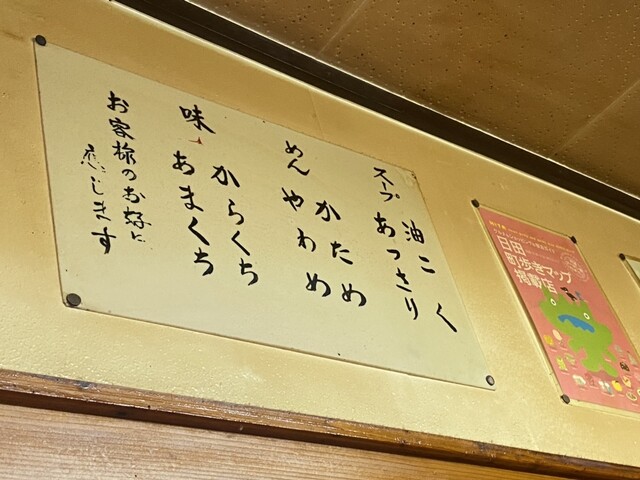 スープ
油こく
あっさり
めん
かため
やわめ
味
からくち
あまくち
お客様のお好に
応じます
日田
町歩きマップ
掲載店